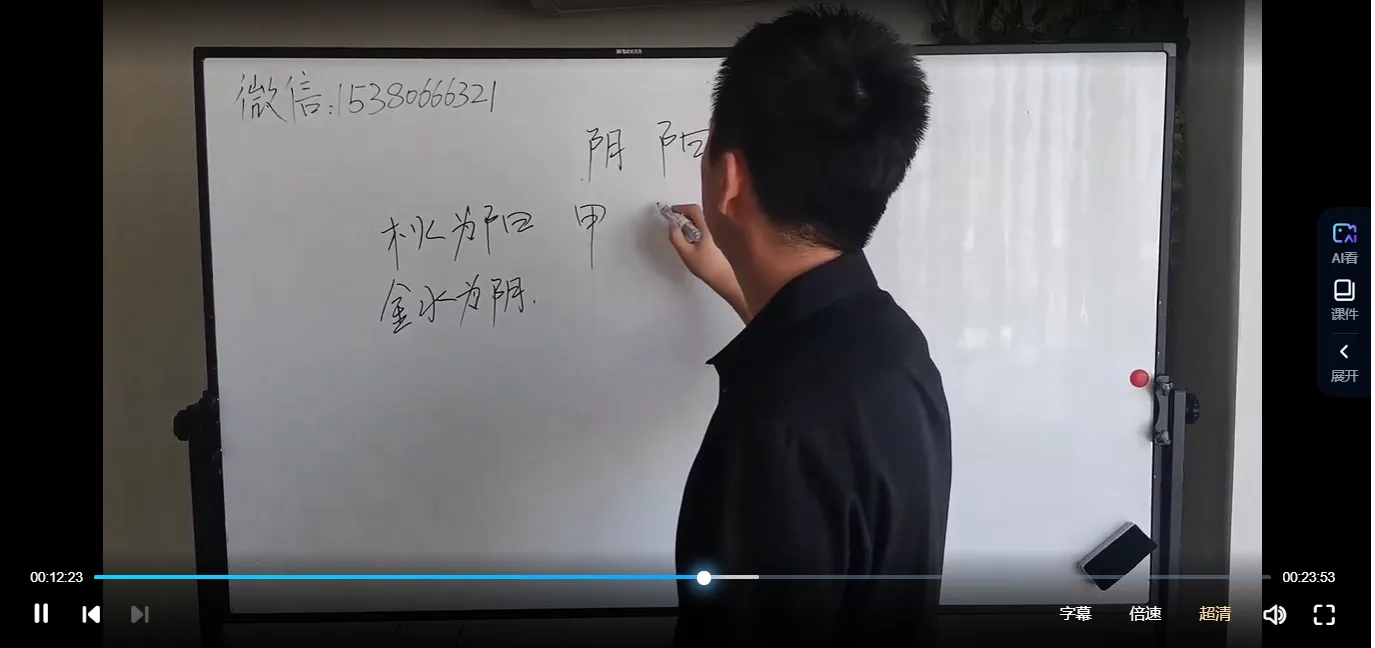 微信:15380666321
阴 阳
木火为阳 甲
金水为阴.
AI看
课件
展开
00:12:23
00:23:53
字幕 倍速 超清